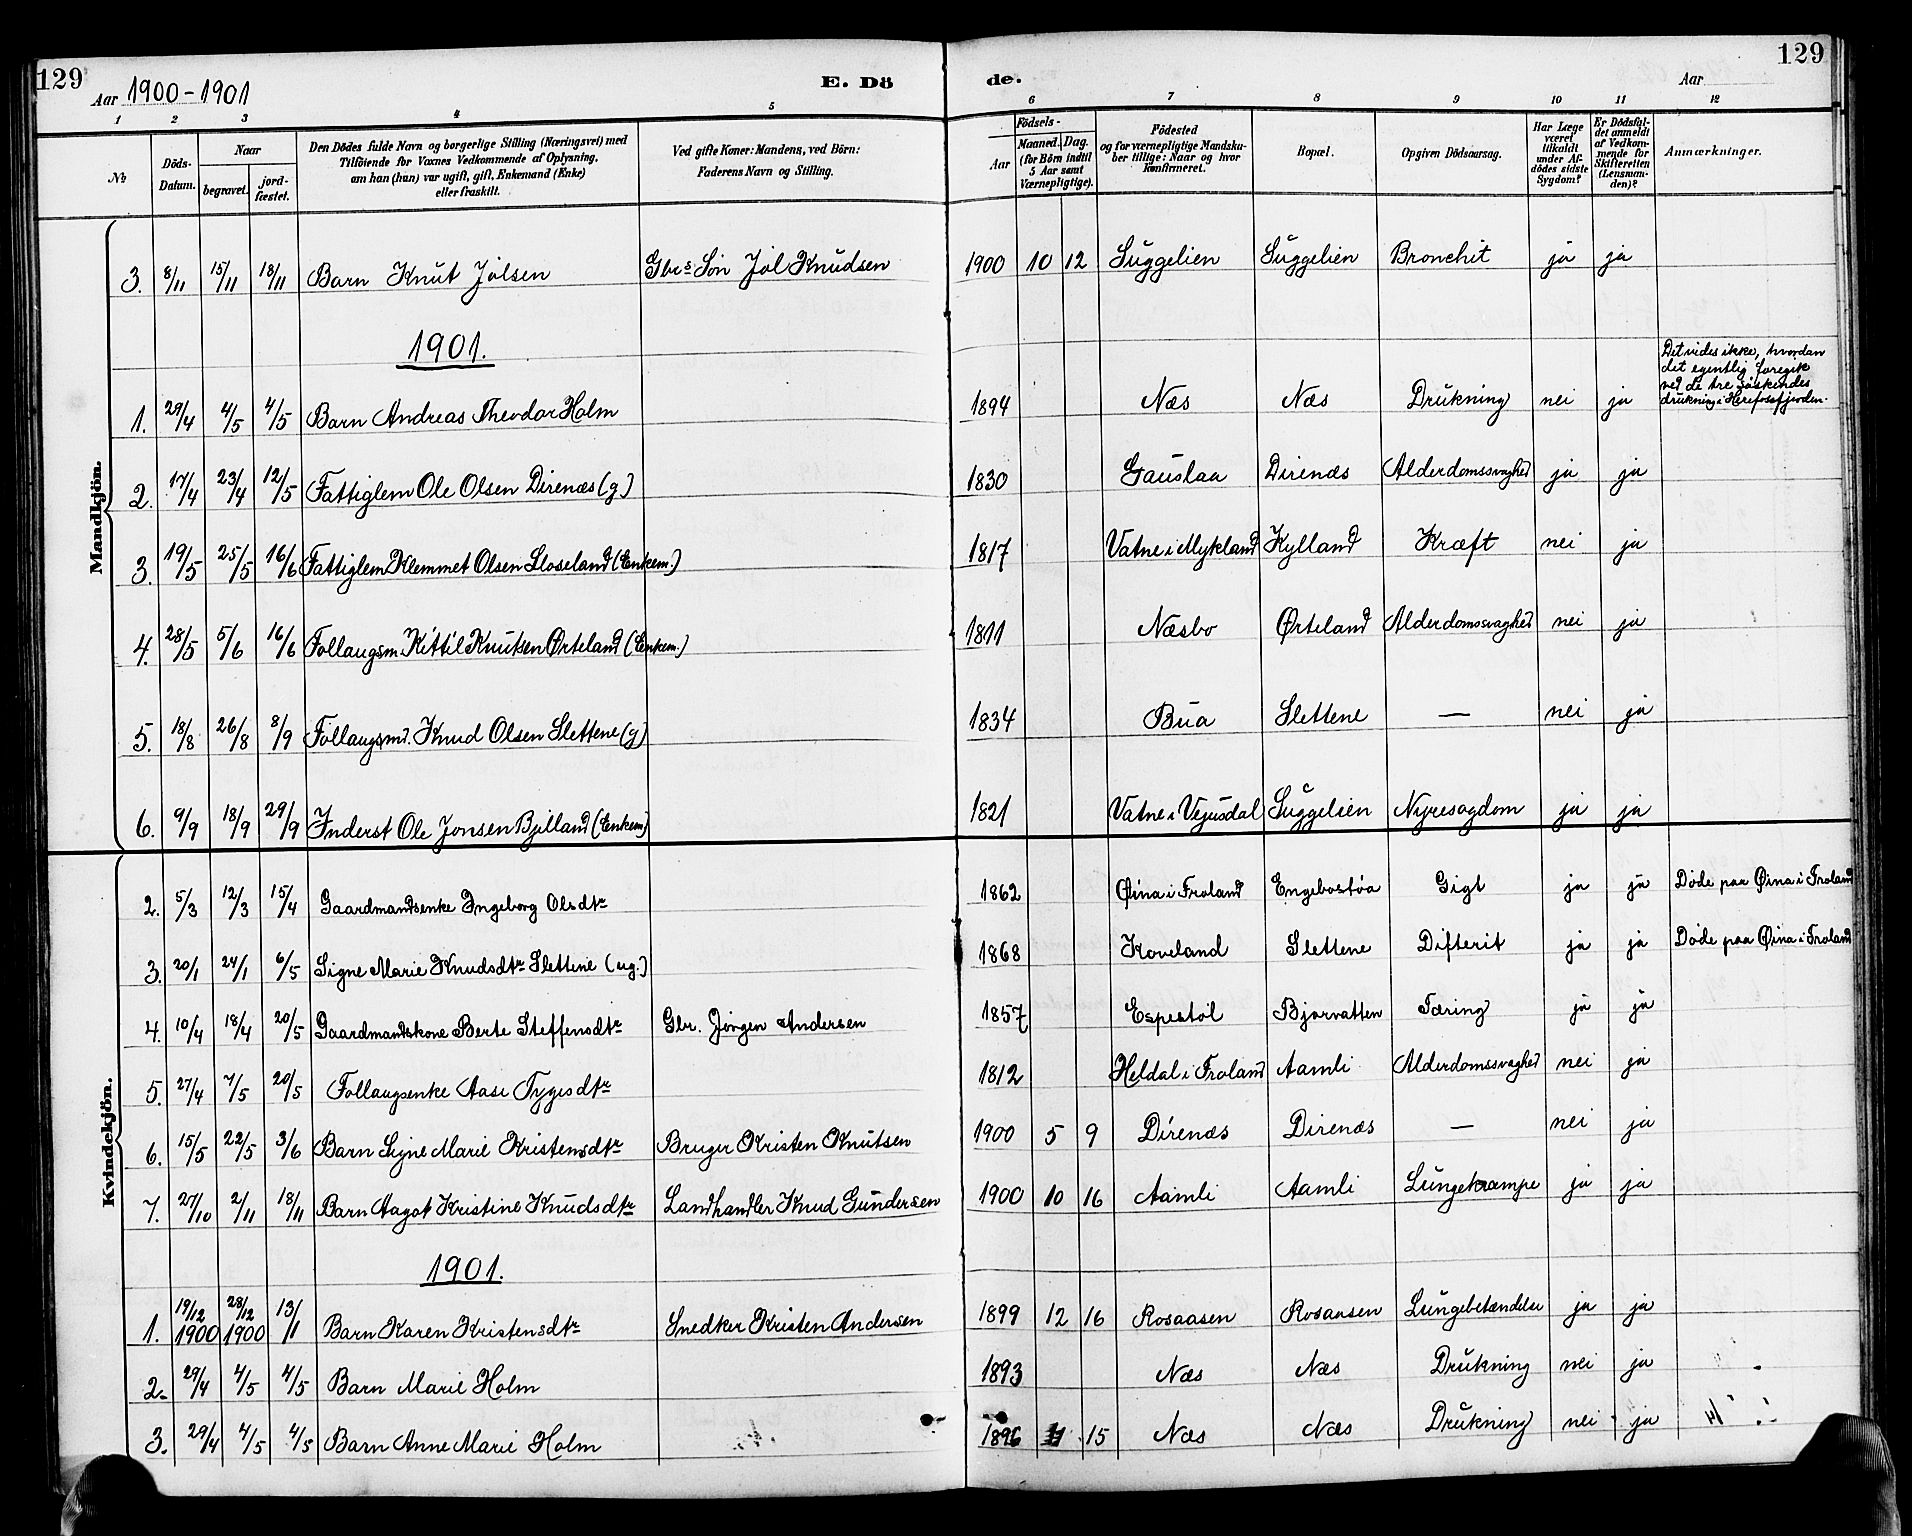 129
Aar 1900-1901
E. Dö
de.
Aar
129
1 2 3 4 5 6 7 8 9 10 11 12
№
Döds-Datum.
Naar
begravet.
jordfæstet.
Den Dödes fulde Navn og borgerlige Stilling (Næringsvei) med
Tilföiende for Voxnes Vedkommende af Oplysning,
om han (hun) var ugift, gift, Enkemand (Enke)
eller fraskilt.
Ved gifte Koner: Mandens, ved Börn:
Faderens Navn og Stilling.
Födsels-
Aar
Maaned. Dag.
(for Börn indtil
5 Aar samt
Værnepligtige).
Födested
og for værnepligtige Mandskaber tillige: Naar og hvor
Konfirmeret.
Bopæl.
Opgiven Dödsaarsag.
Har Læge
været
tilkaldt
under Afdödes sidste
Sygdom?
Er Dödsfaldet anmeldt
af Vedkommende for
Skifteretten
(Lensmanden)?
Anmærkninger.
Mandkjön.
3. 8/11 15/11 18/11 Barn Knut Jølsen Gbrs Søn Jøl Knudsen 1900 10 12 Suggelien Suggelien Bronchit ja ja
1901.
1. 29/4 4/5 4/5 Barn Andreas Theodor Holm 1894 Næs Næs Drukning nei ja Det vides ikke, hvordan
det egentlig foregik
ved de tre søskendes
drukning i Herefossfjorden.
2. 17/4 23/4 12/5 Fattiglem Ole Olsen Direnæs (g.) 1830 Gauslaa Direnæs Alderdomssvaghed ja ja
3. 19/5 25/5 16/6 Fattiglem Klemmet Olsen Sloseland (Enkem.) 1817 Vatne i Mykland Kylland Kræft nei ja
4. 28/5 5/6 16/6 Follaugsm. Kittil Knutsen Ørteland (Enkem.) 1811 Næsbo Ørteland Alderdomssvaghed nei ja
5. 18/8 26/8 8/9 Follaugsmd. Knud Olsen Slettene (g) 1834 Bua Slettene — nei ja
6. 9/9 18/9 29/9 Inderst Ole Jonsen Bjelland (Enkem) 1821 Vatne i Vejusdal Suggelien Nyresygdom ja ja
Kvindekjön.
2. 5/3 12/3 15/4 Gaardmandsenke Ingeborg Olsdtr 1862 Øina i Froland Engebostøa Gigt ja ja Døde paa Øina i Froland
3. 20/1 24/1 6/5 Signe Marie Knudsdtr Slettene (ug.) 1868 Koveland Slettene Difterit ja ja Døde paa Øina i Froland
4. 10/4 18/4 20/5 Gaardmandskone Berte Steffensdtr Gbr. Jørgen Andersen 1857 Espestøl Bjorvatten Tæring ja ja
5. 27/4 7/5 20/5 Follaugsenke Aase Tygesdtr 1812 Heldal i Froland Aamli Alderdomssvaghed nei ja
6. 15/5 22/5 3/6 Barn Signe Marie Kristensdtr Bruger Kristen Knutsen 1900 5 9 Direnæs Direnæs — nei ja
7. 27/10 2/11 18/11 Barn Aagot Kristine Knudsdtr Landhandler Knud Gundersen 1900 10 16 Aamli Aamli Lungekrampe ja ja
1901.
1. 19/12 1900 28/12 1900 13/1 Barn Karen Kristensdtr Snedker Kristen Andersen 1899 12 16 Rosaasen Rosaasen Lungebetændelse ja ja
2. 29/4 4/5 4/5 Barn Marie Holm 1893 Næs Næs Drukning nei ja
3. 29/4 4/5 4/5 Barn Anne Marie Holm 1896 15 Næs Næs Drukning nei ja